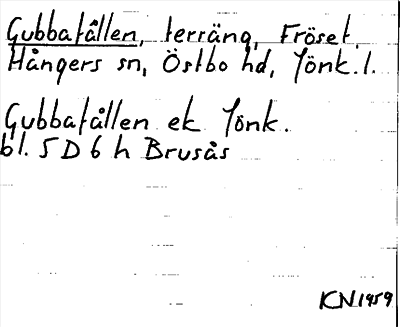 Gubbafållen, terräng, Fröset,
Hångers sn, Östbo hd, Jönk. l.
Gubbafållen ek Jönk.
bl. 5 D 6 h Brusås
KN 1959